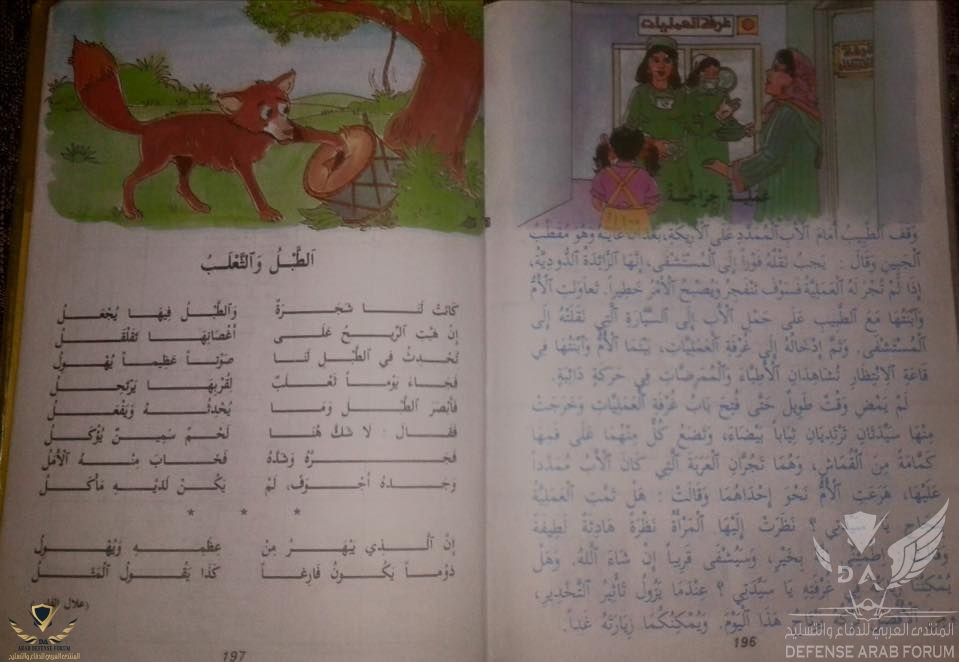 غرفة العمليات
عملية جراحية
وَقَفَ الطَّبِيبُ أَمَامَ الْأَبِ الْمُمَدَّدِ عَلَى الْأَرِيكَةِ، بَعْدَ وَهُوَ مُقَطَّبُ
الْجَبِينِ وَقَالَ : يَجِبُ نَقْلُهُ فَوْراً إِلَى الْمُسْتَشْفَى، إِنَّهَا الزَّائِدَةُ الدُّودِيَّةُ،
إِذَا لَمْ تُجْرَ لَهُ الْعَمَلِيَّةُ فَسَوْفَ تَنْفَجِرُ وَيُصْبِحُ الْأَمْرُ خَطِيراً. تَعَاوَنَتِ الْأُمُّ
وَابْنَتُهَا مَعَ الطَّبِيبِ عَلَى حَمْلِ الْأَبِ إِلَى السَّيَّارَةِ الَّتِي نَقَلَتْهُ إِلَى
الْمُسْتَشْفَى. وَتَمَّ إِدْخَالُهُ إِلَى غُرْفَةِ الْعَمَلِيَّاتِ، بَيْنَمَا الْأُمُّ وَابْنَتُهَا فِي
قَاعَةِ الْاِنْتِظَارِ تُشَاهِدَانِ الْأَطِبَّاءَ وَالْمُمَرِّضَاتِ فِي حَرَكَةٍ دَائِبَةٍ.
لَمْ يَمْضِ وَقْتٌ طَوِيلٌ حَتَّى فُتِحَ بَابُ غُرْفَةِ الْعَمَلِيَّاتِ وَخَرَجَتْ
مِنْهَا سَيِّدَتَانِ تَرْتَدِيَانِ ثِيَاباً بَيْضَاءَ، وَتَضَعُ كُلٌّ مِنْهُمَا عَلَى فَمِهَا
كَمَّامَةً مِنَ الْقُمَاشِ، وَهُمَا تَجُرَّانِ الْعَرَبَةَ الَّتِي كَانَ الْأَبُ مُمَدَّداً
عَلَيْهَا، هَرَعَتِ الْأُمُّ نَحْوَ إِحْدَاهُمَا وَقَالَتْ : هَلْ تَمَّتِ الْعَمَلِيَّةُ
يَا سَيِّدَتِي ؟ نَظَرَتْ إِلَيْهَا الْمَرْأَةُ نَظْرَةً هَادِئَةً لَطِيفَةً
بِخَيْرٍ، وَسَيُشْفَى قَرِيباً إِنْ شَاءَ اللَّهُ. وَهَلْ
يُمْكِنُنَا فِي غُرْفَتِهِ يَا سَيِّدَتِي ؟ عِنْدَمَا يَزُولُ تَأْثِيرُ التَّخْدِيرِ،
هَذَا الْيَوْمَ. وَيُمْكِنُكُمَا زِيَارَتُهُ غَداً.
196
اَلطَّبْلُ وَالثَّعْلَبُ
كَانَتْ لَنَا شَجَرَةٌ وَالطَّبْلُ فِيهَا يُجْعَلُ
إِنْ هَبَّتِ الرِّيحُ عَلَى أَغْصَانِهَا تَقَلْقَلُ
تُحْدِثُ فِي الطَّبْلِ لَنَا صَوْتاً عَظِيماً يَهُولُ
فَجَاءَ يَوْماً ثَعْلَبٌ لِقُرْبِهَا يَرْتَحِلُ
فَأَبْصَرَ الطَّبْلَ وَمَا يُحْدِثُهُ وَيَفْعَلُ
فَقَالَ : لَا شَكَّ هُنَا لَحْمٌ سَمِينٌ يُؤْكَلُ
فَجَرَّهُ وَشَدَّهُ فَخَابَ مِنْهُ الْأَمَلُ
وَجَدَهُ أَجْوَفَ، لَمْ يَكُنْ لَدَيْهِ مَأْكَلُ
* * *
إِنَّ الَّذِي يَبْهَرُ مِنْ عِظَمِهِ وَيَهُولُ
دَوْماً يَكُونُ فَارِغاً كَذَا يَقُولُ الْمَثَلُ
(علال
197
DA
ARAB DEFENSE FORUM
المنتدى العربي للدفاع والتسليح
DA
المنتدى العربي للدفاع والتسليح
DEFENSE ARAB FORUM